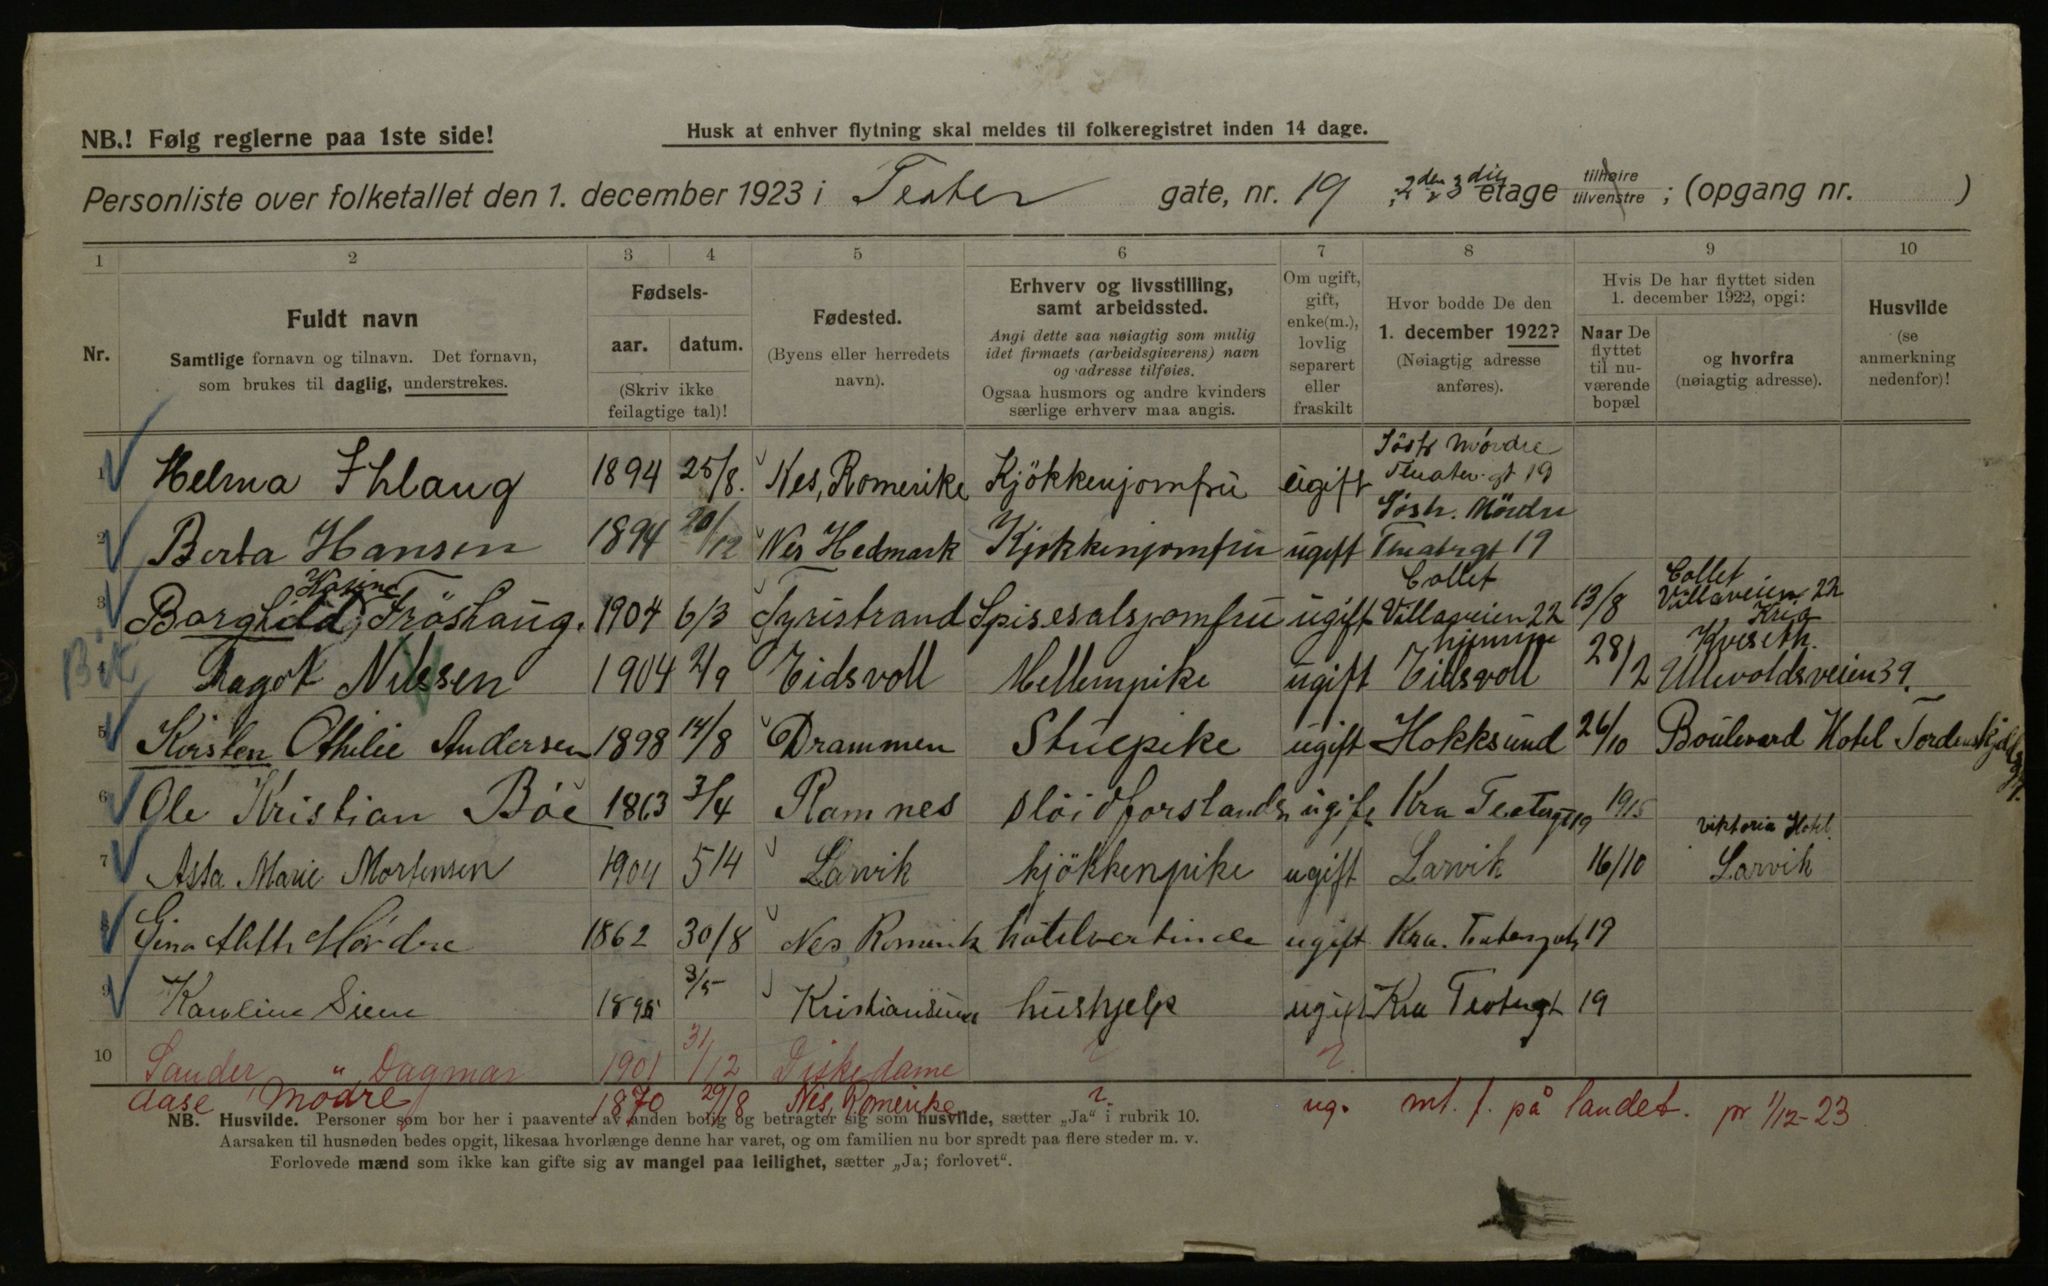 NB.! Følg reglerne paa 1ste side!
Husk at enhver flytning skal meldes til folkeregistret inden 14 dage.
Personliste over folketallet den 1. december 1923 i Teater gate, nr. 19 ; 2den 3die etage tilhøire tilvenstre ; (opgang nr. )
1 2 3 4 5 6 7 8 9 10
Nr.
Fuldt navn
Samtlige fornavn og tilnavn. Det fornavn,
som brukes til daglig, understrekes.
Fødsels-
aar. datum.
(Skriv ikke
feilagtige tal)!
Fødested.
(Byens eller herredets
navn).
Erhverv og livsstilling,
samt arbeidssted.
Angi dette saa nøiagtig som mulig
idet firmaets (arbeidsgiverens) navn
og adresse tilføies.
Ogsaa husmors og andre kvinders
særlige erhverv maa angis.
Om ugift,
gift,
enke(m.),
lovlig
separert
eller
fraskilt
Hvor bodde De den
1. december 1922?
(Nøiagtig adresse
anføres).
Hvis De har flyttet siden
1. december 1922, opgi:
Naar De
flyttet
til nu-
værende
bopæl
og hvorfra
(nøiagtig adresse).
Husvilde
(se
anmerkning
nedenfor)!
1 Helma Ihlaug 1894 25/8. Nes, Romerike Kjökkenjomfru ugift Söstr Mördre Theater gt 19
2 Berta Hansen 1894 20/12 Nes Hedmark Kjøkkenjomfru ugift Söstr. Mördre Theatergt 19
3 Borghild Karine Fröshaug. 1904 6/3 Tyristrand Spisesalsjomfru ugift Collet Villaveien 22 13/8 Collet Villaveien 22 Kria
4 Dagot Nilsen 1904 2/9 Eidsvoll Mellempike ugift hjemme Eidsvoll 28/2 Kveseth. Ullevoldsveien 39.
5 Kirsten Othilie Andersen 1898 14/8 Drammen Stuepike ugift Hokksund 26/10 Boulevard Hotel Tordenskjoldsgt.
6 Ole Kristian Böe 1863 3/4 Ramnes Slöidforstander ugift Kra Teatergt 19 1915
7 Assa Marie Mortensen 1904 5/4 Larvik kjökkenpike ugift Larvik 16/10 Viktoria Hotel Larvik
8 Gina Aleth Mördre 1862 30/8 Nes, Romerik hotelvertinde ugift Kra. Teatergate 19
9 Karoline Siem 1895 3/5 Kristiansund hushjelp ugift Kra Teatergt 19
10 Sander " Dagmar 1901 31/12 Diskedame ? ?
Aase Mödre 1870 29/8 Nes, Romerike ? ug. mt. f. på landet. pr 1/12-23
NB. Husvilde. Personer som bor her i paavente av anden bolig og betragter sig som husvilde, sætter „Ja" i rubrik 10.
Aarsaken til husnøden bedes opgit, likesaa hvorlænge denne har varet, og om familien nu bor spredt paa flere steder m. v.
Forlovede mænd som ikke kan gifte sig av mangel paa leilighet, sætter „Ja; forlovet".